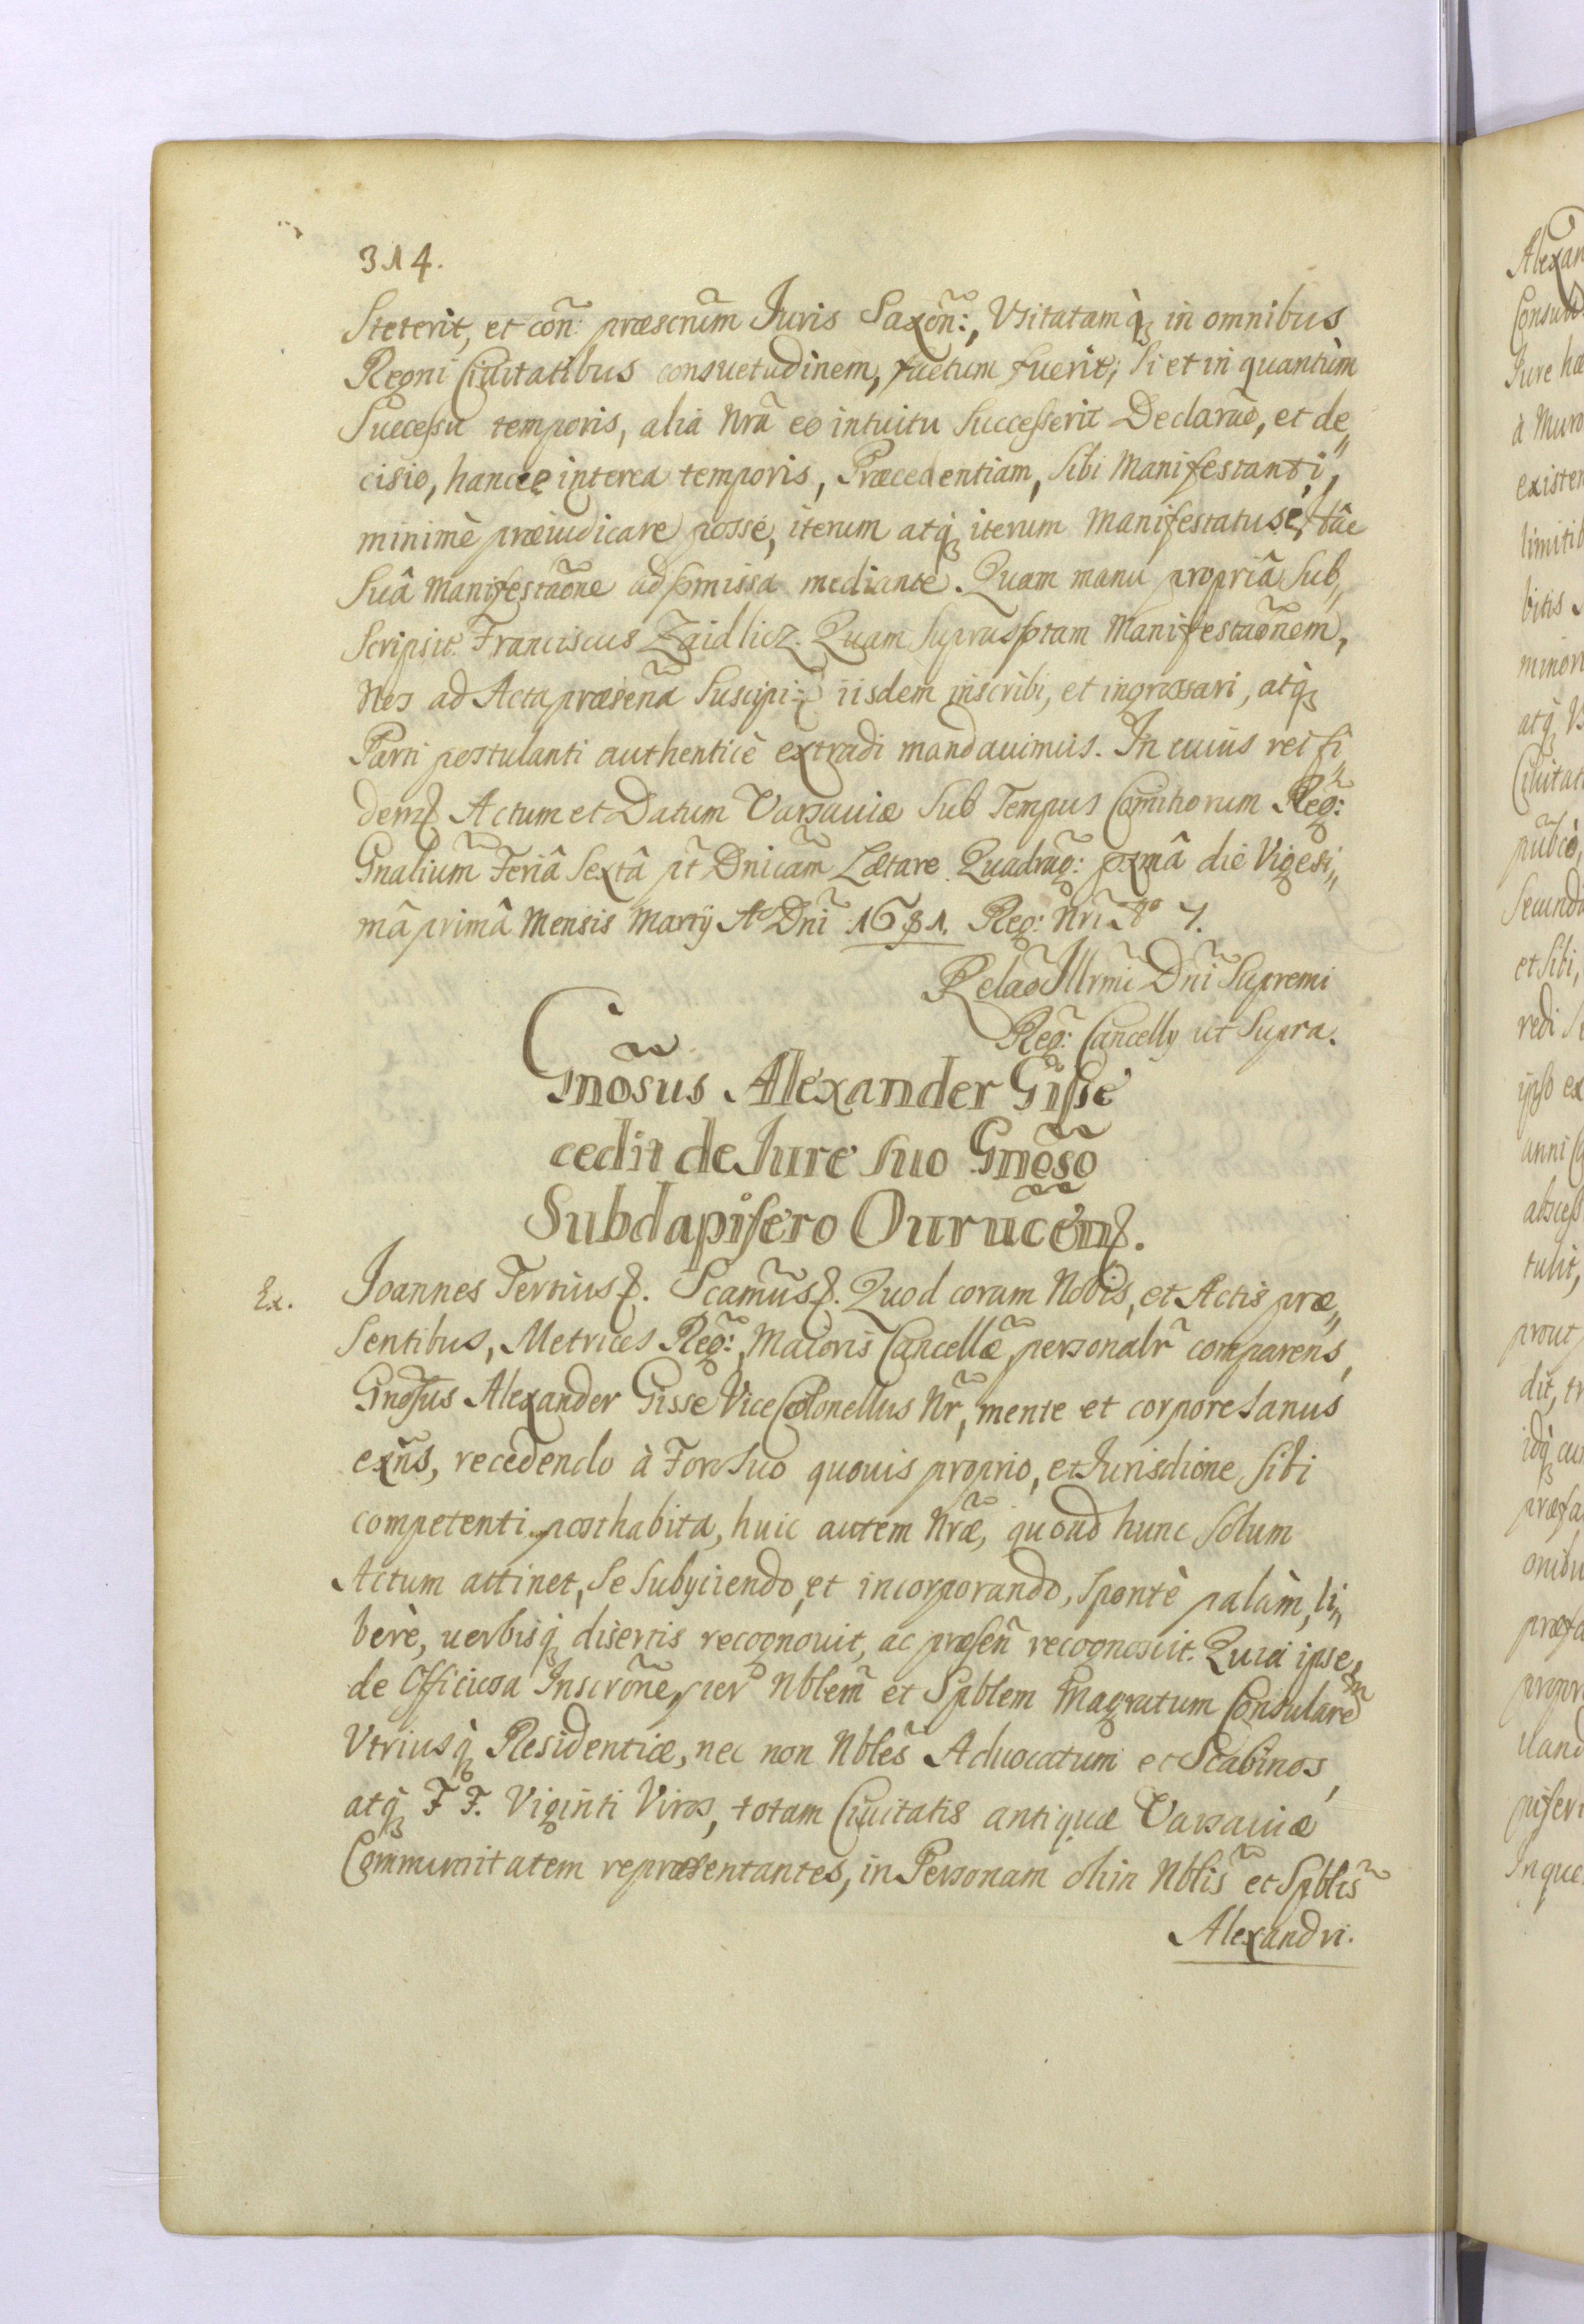 314.
Steterit, et coñ: præscrũm Iuris Saxoñ:, Vsitatamq̀ in omnibus
Regni Ciuitatibus consuetudinem, factum fuerit; Si et in quantùm
Successu temporis, alia Nrã eo intuitu Successerit Declarão, et de„
cisio, hancce interea temporis, Præcedentiam, Sibi Manifestanti,
minimè præiudicare posse, iterum atq iterum Manifestatus e,
Suâ Manifestãone ad pmissa mediante. Quam manu propriâ Sub„
scripsit Franciscus Zaidlicz. Quam Suprasptam Manifestãonem,
Nos ad Acta præsenã Suscipi iisdem inscribi, et ingrossari, atq
Parti postulanti authenticè extradi mandauimus. In cuius rei fi„
dem Actum et Datum Varsauiæ Sub Tempus Comitiorum Reg:
Gnaliũm Feriâ Sextâ pt̃ Dnicam̃ Lætare Quadrag̃: pxmâ die Vigesi„
mâ primâ Mensis Martij Aº Dni 1681. Reg: Nri 7.
Relão Illrmi Dni Supremi
Reg: Cancellÿ ut Supra.
Gnõsus Alexander Gisse
cedit de Iure Suo Gnõso
Subdapifero Ourucen̄.
Ex. Joannes Tertius. Scamũs. Quod coram Nobis, et Actis præ„
sentibus, Metrices Reg:, Maioris Cancellæ̃, personalr̃ comparens,
Gnosus Alexander Gisse Vice Colonellus Nr̃, mente et corpore sanus
exñs, recedendo à Foro Suo quouis proprio, et Iurisdione Sibi
competenti posthabita, huic autem Nræ̃, quoad hunc Solum
Actum attinet, Se Subyciendo, et incorporando, Spontè palàm, li„
berè, uerbisq disertis recognouit, ac præsen̄ recognoscit. Quia ipse
de Officiosa Inscrõne, per Nblem̃ et Spblem Magratum Consularem
Vtriusq̀ Residentiæ, nec non Nbles̃ Aduocatum et Scabinos,
atq̀ F F. Viginti Viros, totam Ciuitatis antiquæ Varsauiæ
Communitatem repræsentantes, in Personam olim Nblis̃ et Spblis̃
Alexandri.